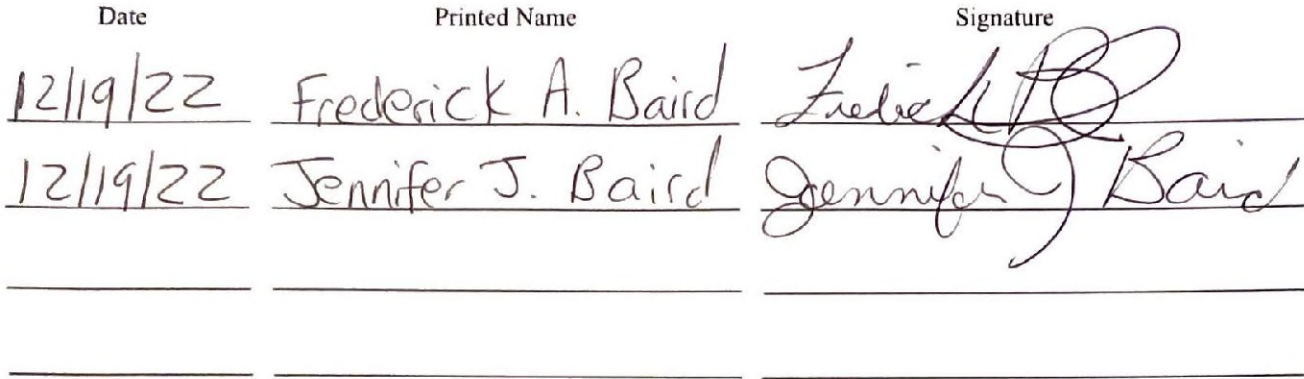 Date Printed Name Signature
12/19/22 Frederick A. Baird Frederick
12/19/22 Jennifer J. Baird Jennifer J Baird